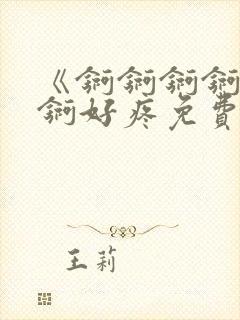 《锕锕锕锕
锕好疼免費
王莉